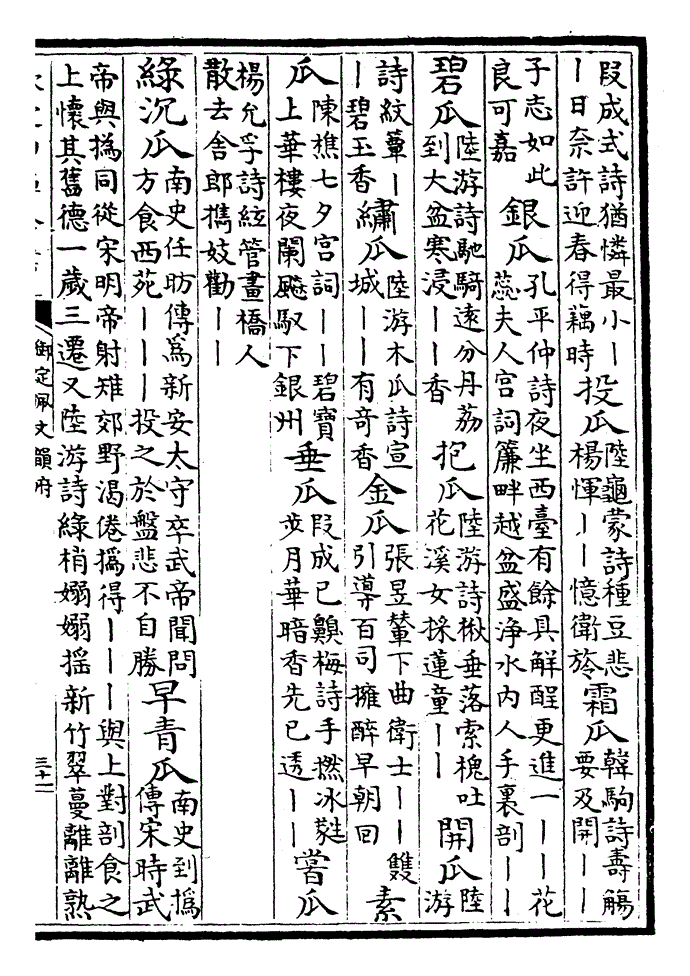 段成式詩猶憐最小丨
丨日奈許迎春得藕時
投瓜
陸龜蒙詩種豆悲
楊惲丨丨憶衛旍
霜瓜
韓駒詩壽觴
要及開丨丨
子志如此
良可嘉
銀瓜
孔平仲詩夜坐西臺有餘具解酲更進一丨丨花
蕊夫人宮詞簾畔越盆盛浄水内人手裏剖丨丨
碧瓜
陸游詩馳騎逺分丹荔
到大盆寒浸丨丨香
抱瓜
陸游詩楸垂落索槐吐
花溪女採蓮童丨丨
開瓜
陸
游
詩紋簟丨
丨碧玉香
繡瓜
陸游木瓜詩宣
城丨丨有奇香
金瓜
張昱輦下曲衛士丨丨雙
引導百司擁醉早朝回
素
瓜
陳樵七夕宮詞丨丨碧寶
上華樓夜闌飈馭下銀州
垂瓜
段成已臘梅詩手撚冰蕤
步月華暗香先已透丨丨
嘗瓜
楊允孚詩絃管畫橋人
散去舎郎擕妓勸丨丨
緑沉瓜
南史任昉傳為新安太守卒武帝聞問
方食西苑丨丨丨投之於盤悲不自勝
早青瓜
南史到撝
傳宋時武
帝與撝同從宋明帝射雉郊野渴倦撝得丨丨丨與上對剖食之
上懷其舊德一歲三遷又陸游詩緑梢嫋嫋揺新竹翠蔓離離熟
御定佩文韻府